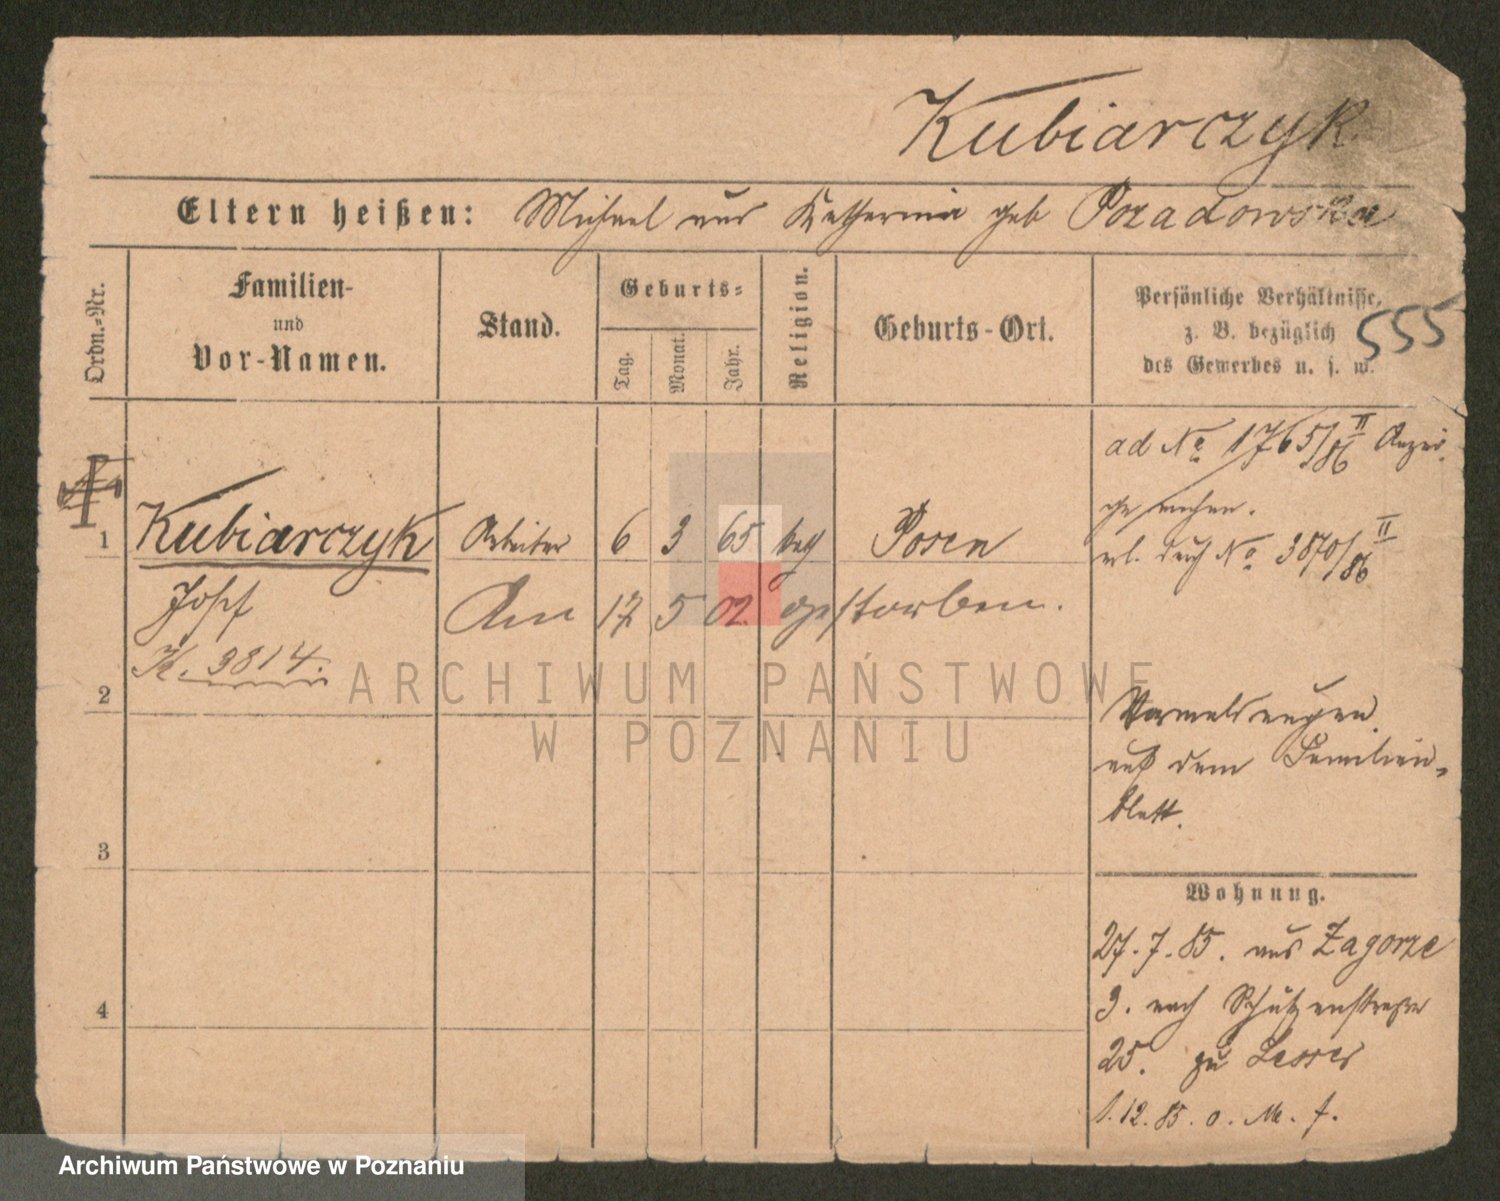 Kubiarczyk
Eltern heißen: Michael und Katharina geb Pozadowska
Ordn.-Nr.
Familien-
und
Vor-Namen.
Stand.
Geburts-
Tag.
Monat.
Jahr.
Religion.
Geburts-Ort.
Persönliche Verhältnisse,
z. B. bezüglich
des Gewerbes u. s. w.
555
1
Kubiarczyk Arbeiter 6 3 65 kath Posen
Josef
Am 17 5 02 gestorben.
K. 3814.
2
3
4
ad No 1765/86 II
erl. durch No 3870/86 II
Vormeldungen
auf dem Familien-
blatt.
Wohnung.
27.7.85. aus Zagorze
3. nach Schützenstraße
25. zu Lesser
1.12.85. o. M. f.
ARCHIWUM PAŃSTWOWE
W POZNANIU
Archiwum Państwowe w Poznaniu